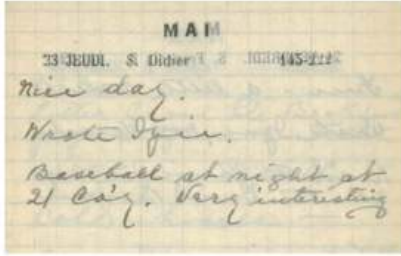 MAI
23 JEUDI. S. Didier 143-222
Nice day.
Wrote
Baseball at night at
21 Co'y. Very interesting